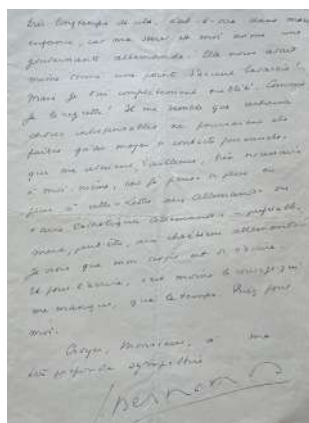 très longtemps de cela, c'est-à-dire dans mon
enfance, car ma sœur et moi avions une
gouvernante allemande. Elle nous avait
même donné une pointe d'accent bavarois !
Mais je l'ai complètement oublié. Comme
je le regrette ! Il me semble que certaines
choses indispensables ne pourraient être
faites qu'au moyen de contacts personnels,
que me seraient, d'ailleurs, très nécessaires
à moi-même, car je pense de plus en
plus à cette « Lettre aux Allemands » ou
« aux Catholiques Allemands »
mais, peut-être, aux chrétiens allemands.
Je crois que mon esprit est
Et pour l'écrire, c'est moins le courage qui
me manque, que le temps. Priez pour
moi.
Croyez, Monsieur, à ma
très profonde sympathie